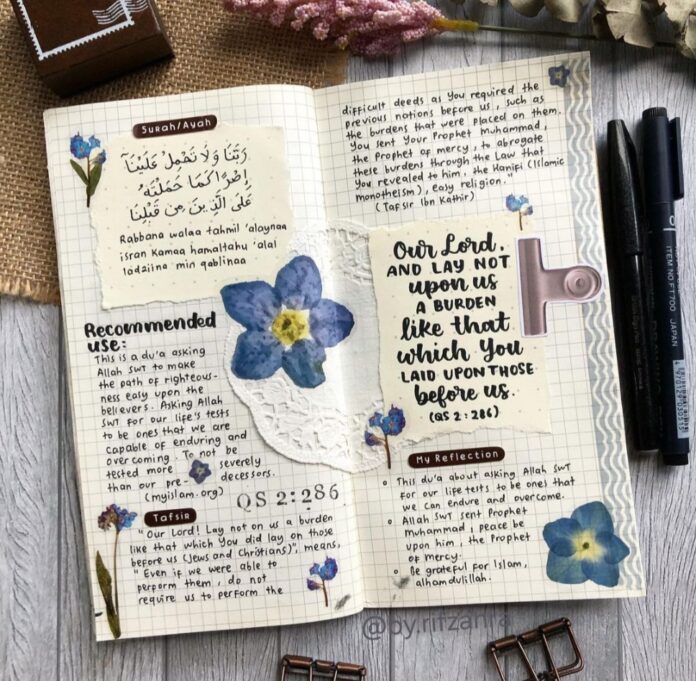 Surah/Ayah
رَبَّنَا وَلَا تَحْمِلْ عَلَيْنَآ
إِصْرًا كَمَا حَمَلْتَهُ
عَلَى الَّذِينَ مِن قَبْلِنَا
Rabbana walaa tahmil 'alaynaa
isran Kamaa hamaltahu 'alal
ladziina min qablinaa
Recommended
use:
This is a du'a asking
Allah SWT to make
the path of righteous-
ness easy upon the
believers. Asking Allah
SWT for our life's tests
to be ones that we are
capable of enduring and
overcoming. To not be
tested more severely
than our pre- decessors.
(myislam.org)
QS 2:286
Tafsir
"Our Lord! Lay not on us a burden
like that which You did lay on those
before us (Jews and Christians)", means,
"Even if we were able to
perform them, do not
require us to perform the
difficult deeds as You required the
previous nations before us, such as
the burdens that were placed on them.
You sent Your Prophet Muhammad,
the Prophet of mercy, to abrogate
these burdens through the Law that
You revealed to him, the Hanifi (Islamic
monotheism), easy religion."
(Tafsir Ibn Kathir)
Our Lord,
AND LAY NOT
upon us
A BURDEN
like that
which You
LAID UPON THOSE
before us.
(QS 2:286)
My Reflection
This du'a about asking Allah SWT
for our life tests to be ones that
we can endure and overcome.
Allah SWT sent Prophet
Muhammad, peace be
upon him, the Prophet
of mercy.
Be grateful for Islam,
alhamdulillah.
ITEM NO FT700 JAPAN